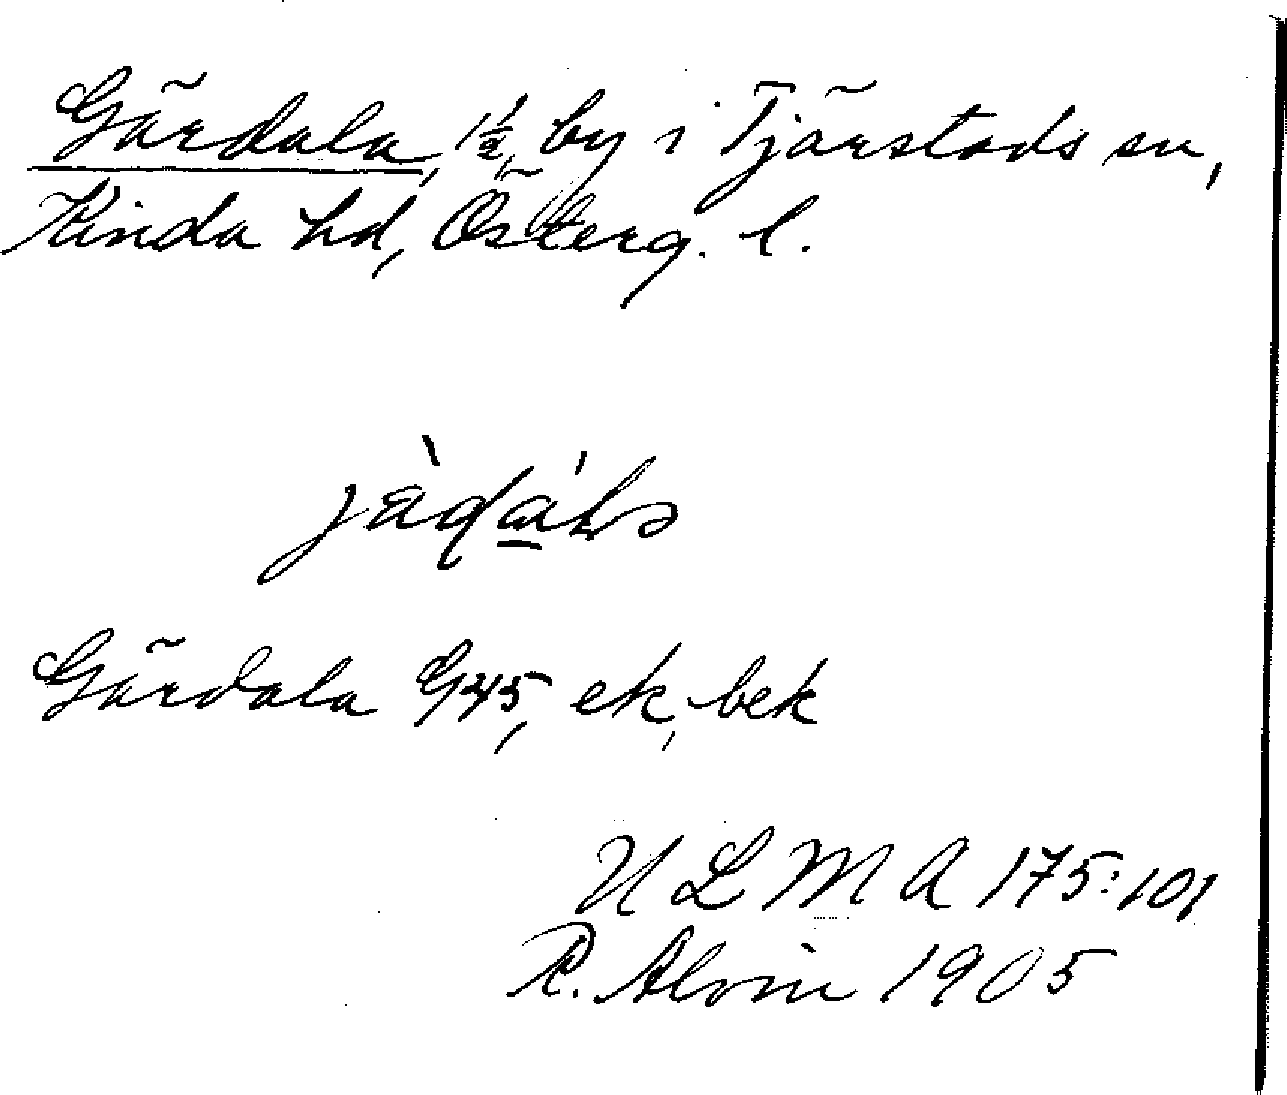 Gärdala, 1½, by i Tjärstads sn,
Kinda hd, Österg. l.
Gärdala G45, ek, bek
ULMA 175:101
R. Alvin 1905